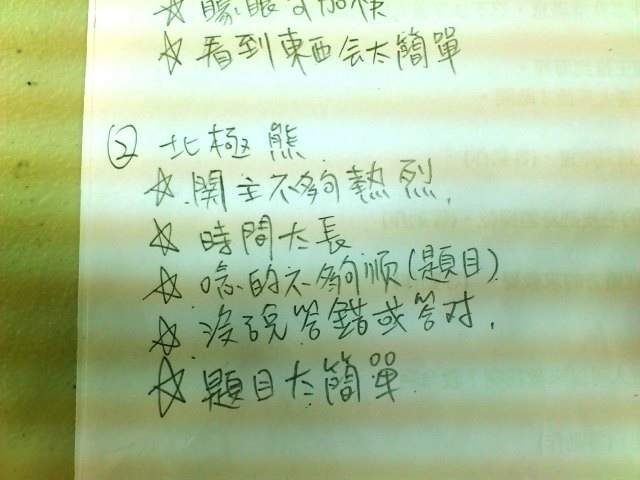 ☆ 矇眼可加快
☆ 看到東西会太簡單
② 北極熊
☆ 関主不夠熱烈.
☆ 時間太長
☆ 唸的不夠順(題目)
☆ 沒說答錯或答对.
☆ 題目太簡單